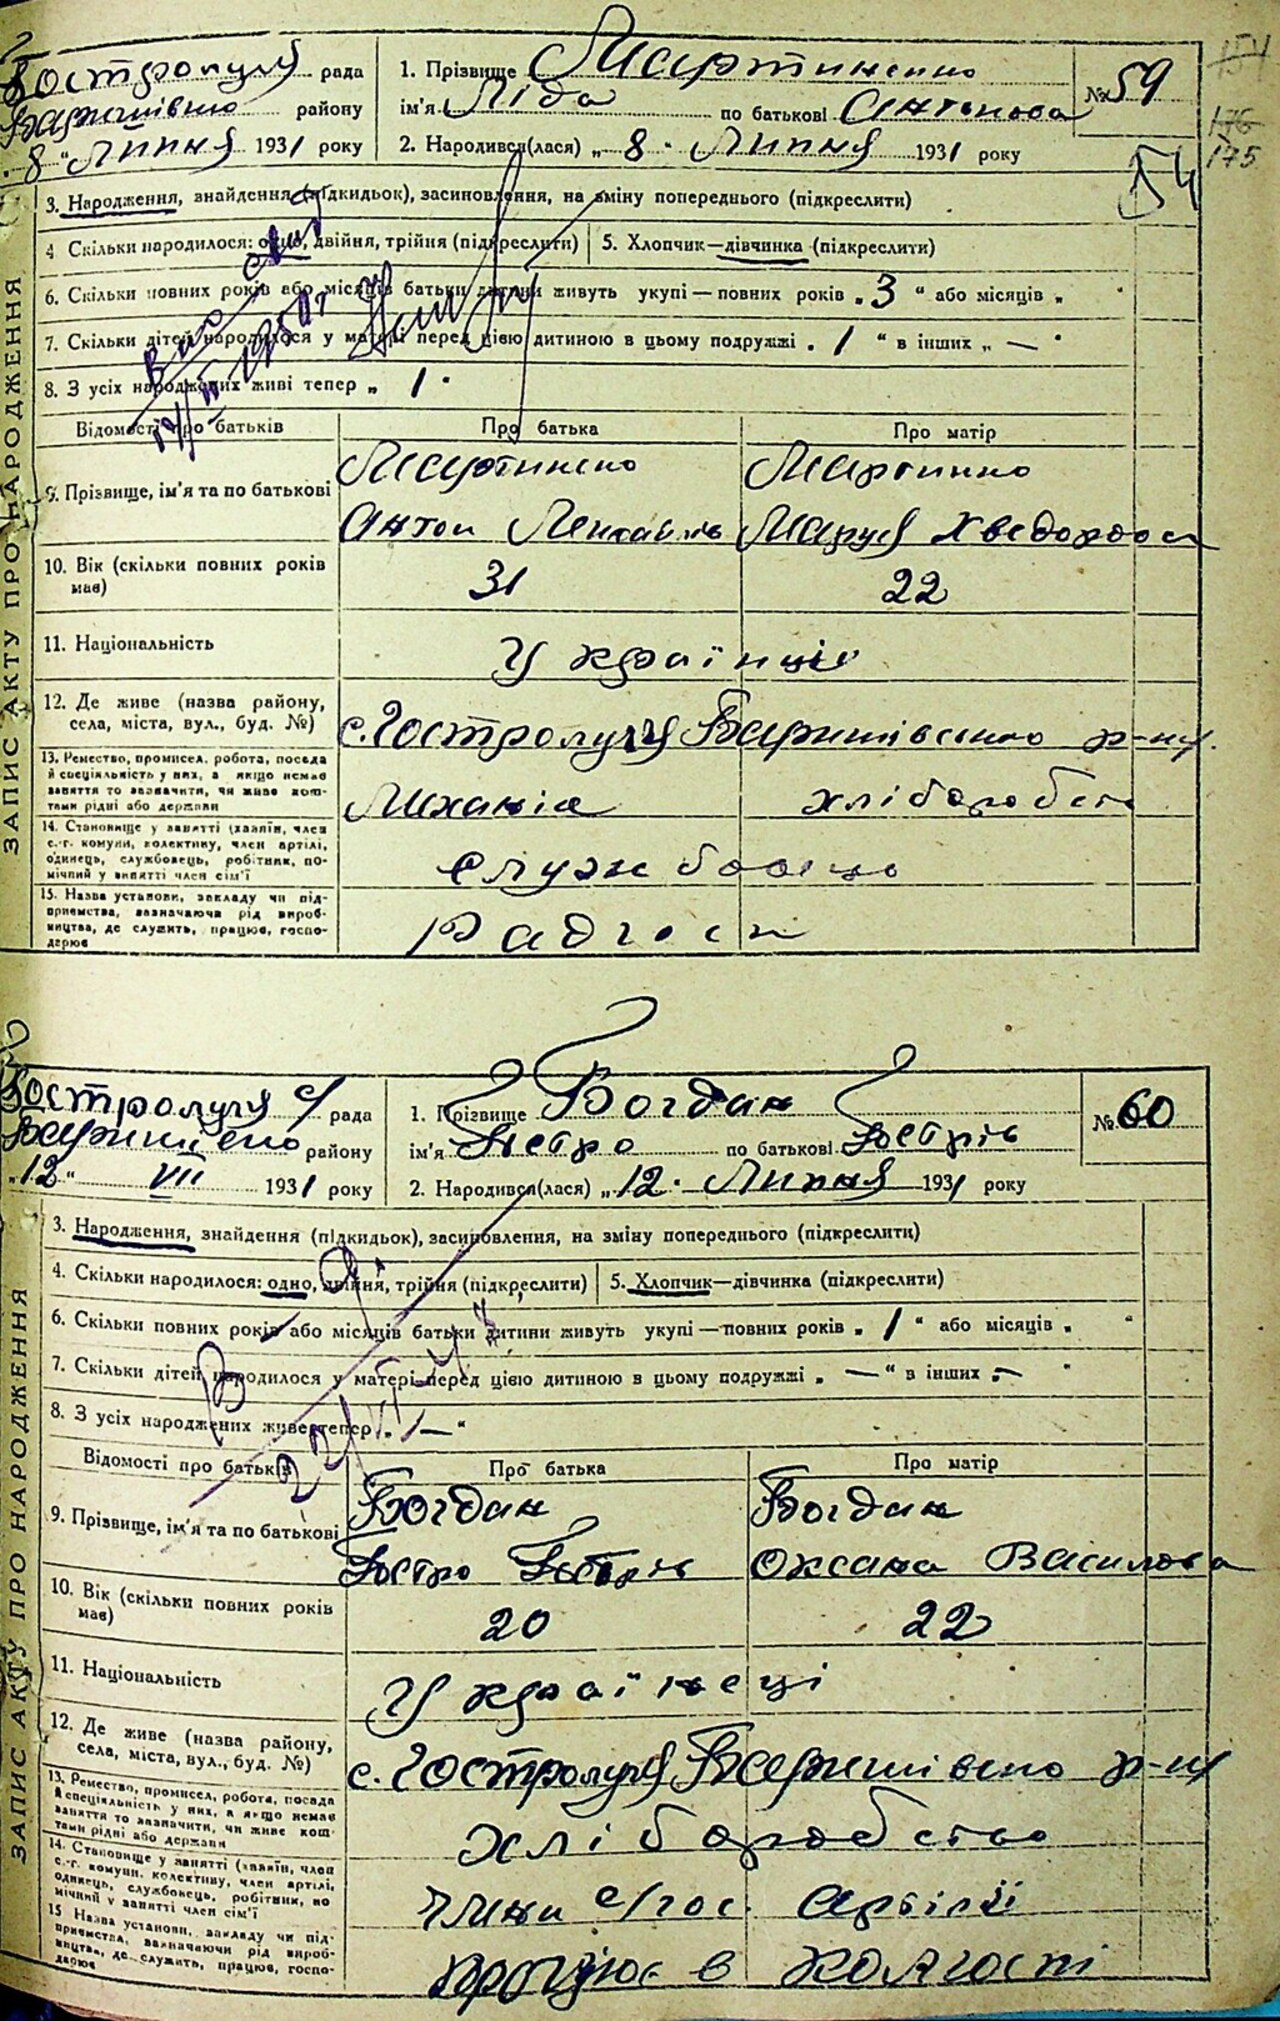 Гостролуччя рада
Баришівського району
"8" Липня 1931 року
1. Прізвище Мартиненко
ім'я Ліда по батькові Антонова
2. Народився(лася) „8" Липня 1931 року
№ 59
154
176
175
54
3. Народження, знайдення (підкидьок), засиновлення, на зміну попереднього (підкреслити)
4 Скільки народилося: одно, двійня, трійня (підкреслити) 5. Хлопчик—дівчинка (підкреслити)
6. Скільки повних років або місяців батьки дитини живуть укупі — повних років „3" або місяців „ "
7. Скільки дітей народилося у матері перед цією дитиною в цьому подружжі „1" в інших „—"
8. З усіх народжених живі тепер „1"
Відомості про батьків Про батька Про матір
9. Прізвище, ім'я та по батькові
Мартиненко
Антон Михайлів
Мартинко
Маруся Хведорова
10. Вік (скільки повних років мав) 31 22
11. Національність Українці
12. Де живе (назва району, села, міста, вул., буд. №) с. Гостролуччя Баришівсько р-ну
13. Ремество, промисел, робота, посада
й спеціальність у них, а якщо немає
заняття то зазначити, чи живе кош-
тами рідні або держави
Механік хліборобство
14. Становище у занятті (хазяїн, член
с.-г. комуни, колективу, член артілі,
одинець, службовець, робітник, по-
мічний у занятті член сім'ї
службовець
15. Назва установи, закладу чи під-
приємства, зазначаючи рід вироб-
ництва, де служить, працює, госпо-
дарює
Радгосп
ЗАПИС АКТУ ПРО НАРОДЖЕННЯ
Гостролуччя с/рада
Баришівсько району
„12" VII 1931 року
1. Прізвище Богдан
ім'я Петро по батькові Петрів
2. Народився(лася) „12" Липня 1931 року
№ 60
3. Народження, знайдення (підкидьок), засиновлення, на зміну попереднього (підкреслити)
4. Скільки народилося: одно, двійня, трійня (підкреслити) 5. Хлопчик—дівчинка (підкреслити)
6. Скільки повних років або місяців батьки дитини живуть укупі — повних років „1" або місяців „ "
7. Скільки дітей народилося у матері перед цією дитиною в цьому подружжі „—" в інших „—"
8. З усіх народжених живе тепер „—"
Відомості про батьків Про батька Про матір
9. Прізвище, ім'я та по батькові
Богдан
Петро Петрів
Богдан
Оксана Василова
10. Вік (скільки повних років мав) 20 22
11. Національність Українеці
12. Де живе (назва району, села, міста, вул., буд. №) с. Гостролуччя Баришівсько р-ну
13. Ремество, промисел, робота, посада
й спеціальність у них, а якщо немає
заняття то зазначити, чи живе кош-
тами рідні або держави
хліборобство
14. Становище у занятті (хазяїн, член
с.-г. комуни, колективу, член артілі,
одинець, службовець, робітник, по
мічний у занятті член сім'ї
члени с/гос. артілі
15 Назва установи, закладу чи під-
приємства, зазначаючи рід вироб-
ництва, де служить, працює, госпо-
дарює
працює в колгоспі
ЗАПИС АКТУ ПРО НАРОДЖЕННЯ